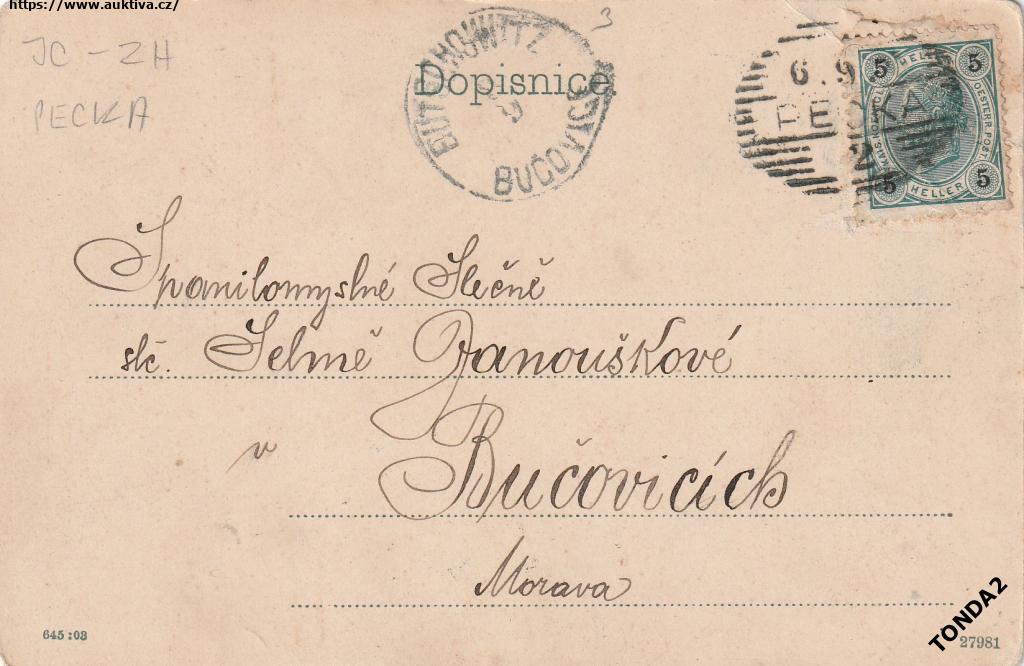 https://www.auktiva.cz/
JC - ZH
PECKA
3
Dopisnice.
BUTSCHOWITZ
BUČOVICE
6.9
PECKA
2
5 HELLER 5
KAIS. KÖNIGL.
OESTERR. POST.
5 HELLER 5
Spanilomyslné Slečně
slč. Selmě Janouškové
v
Bučovicích
Morava
645:03
27981
TONDA2